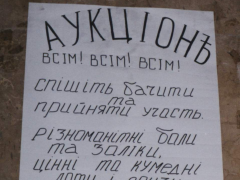 АУКЦІОНЪ
ВСІМ! ВСІМ! ВСІМ!
СПІШІТЬ БАЧИТИ
ТА
ПРИЙНЯТИ УЧАСТЬ.
РІЗНОМАНІТНІ БАЛИ
ТА ЗАЛІКИ,
ЦІННІ ТА КУМЕДНІ